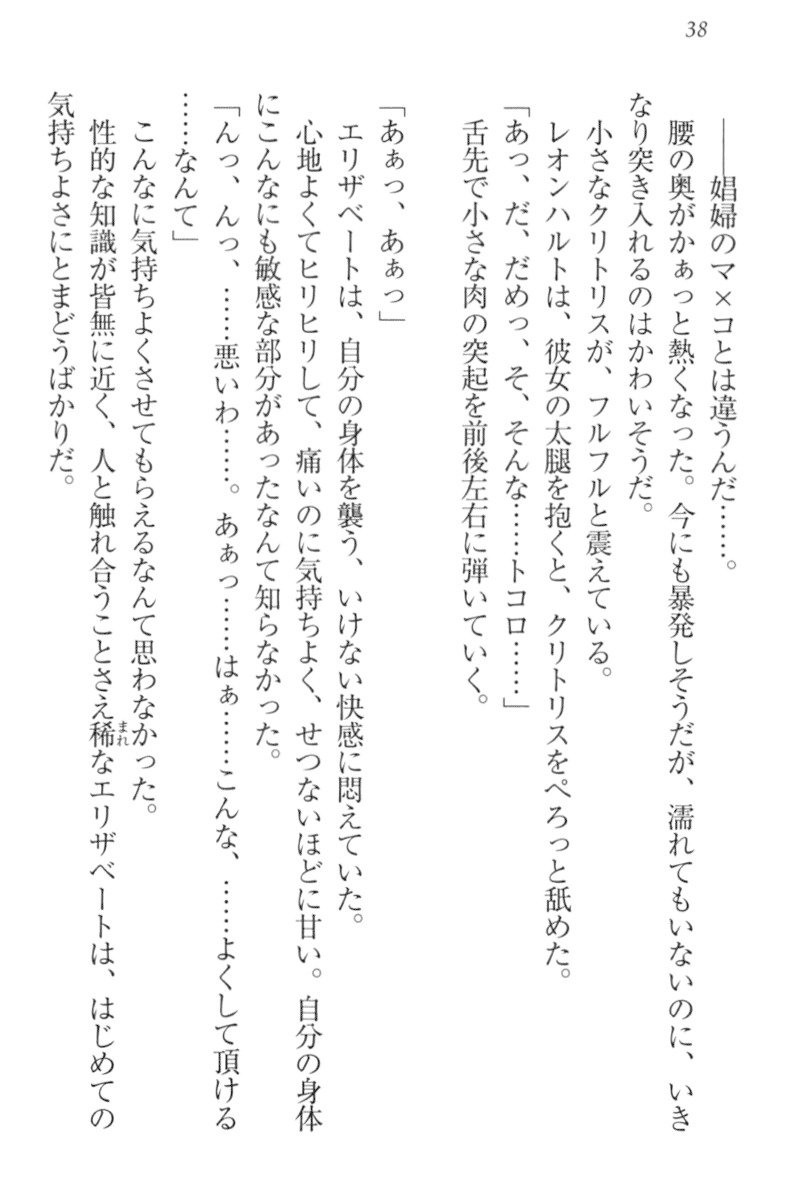 38
――娼婦のマ×コとは違うんだ……。
腰の奥がかぁっと熱くなった。今にも暴発しそうだが、濡れてもいないのに、いき
なり突き入れるのはかわいそうだ。
小さなクリトリスが、フルフルと震えている。
レオンハルトは、彼女の太腿を抱くと、クリトリスをぺろっと舐めた。
「あっ、だ、だめっ、そ、そんな……トコロ……」
舌先で小さな肉の突起を前後左右に弾いていく。
「あぁっ、あぁっ」
エリザベートは、自分の身体を襲う、いけない快感に悶えていた。
心地よくてヒリヒリして、痛いのに気持ちよく、せつないほどに甘い。自分の身体
にこんなにも敏感な部分があったなんて知らなかった。
「んっ、んっ、……悪いわ……。あぁっ……はぁ……こんな、……よくして頂ける
……なんて」
こんなに気持ちよくさせてもらえるなんて思わなかった。
性的な知識が皆無に近く、人と触れ合うことさえ稀まれなエリザベートは、はじめての
気持ちよさにとまどうばかりだ。